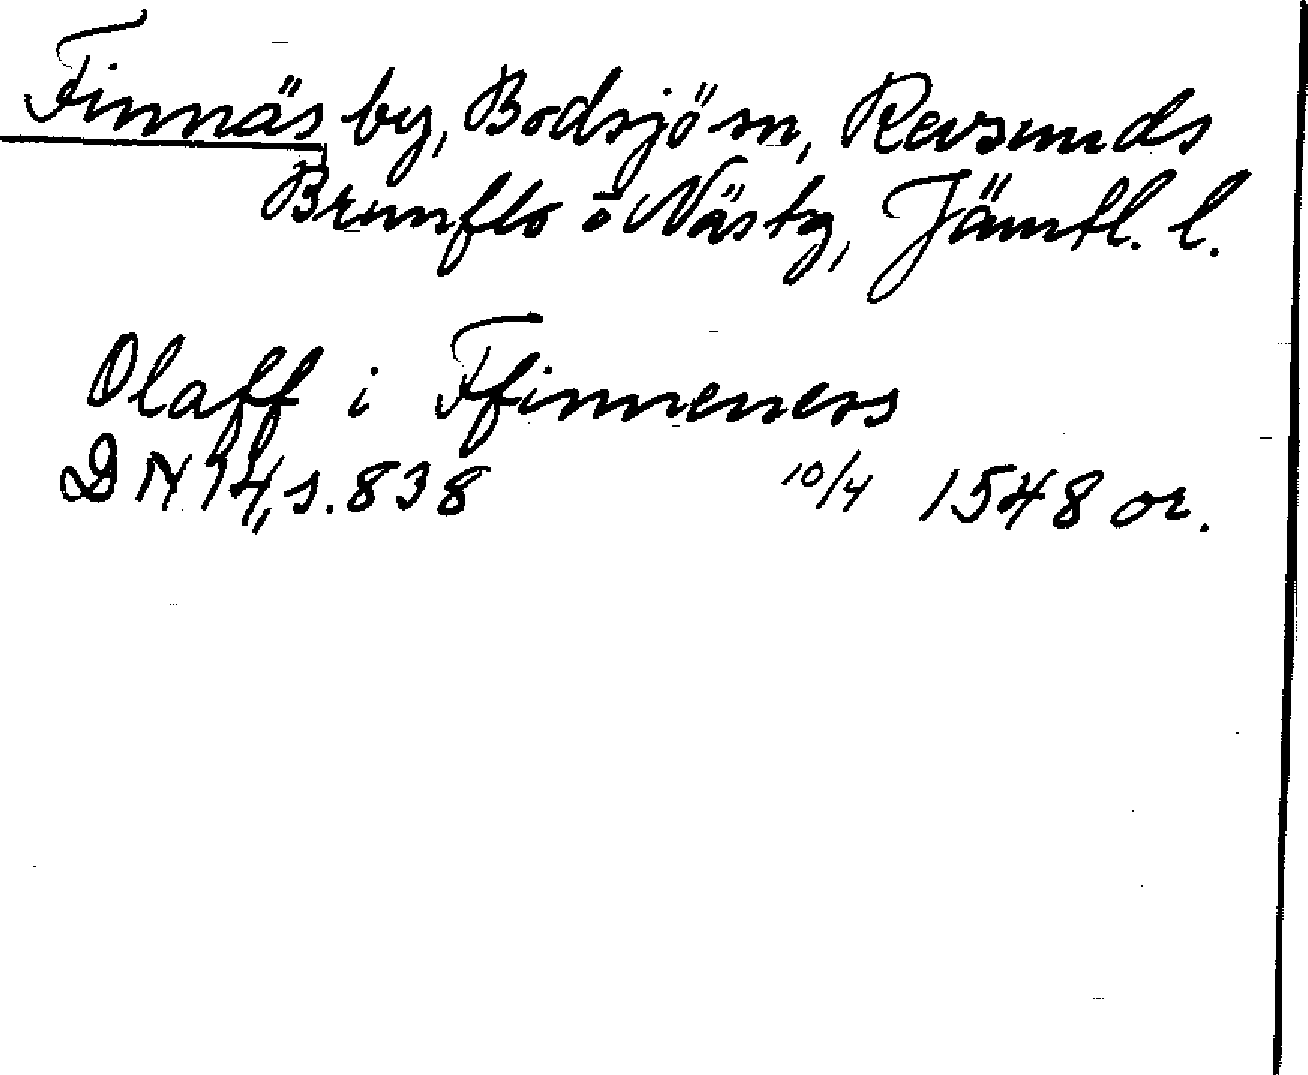 Finnäs by, Bodsjö sn, Revsunds
Brunflo o Näs tg, Jämtl. l.
Olaff i Ffinneness
DN 14, s. 838 10/4 1548 or.